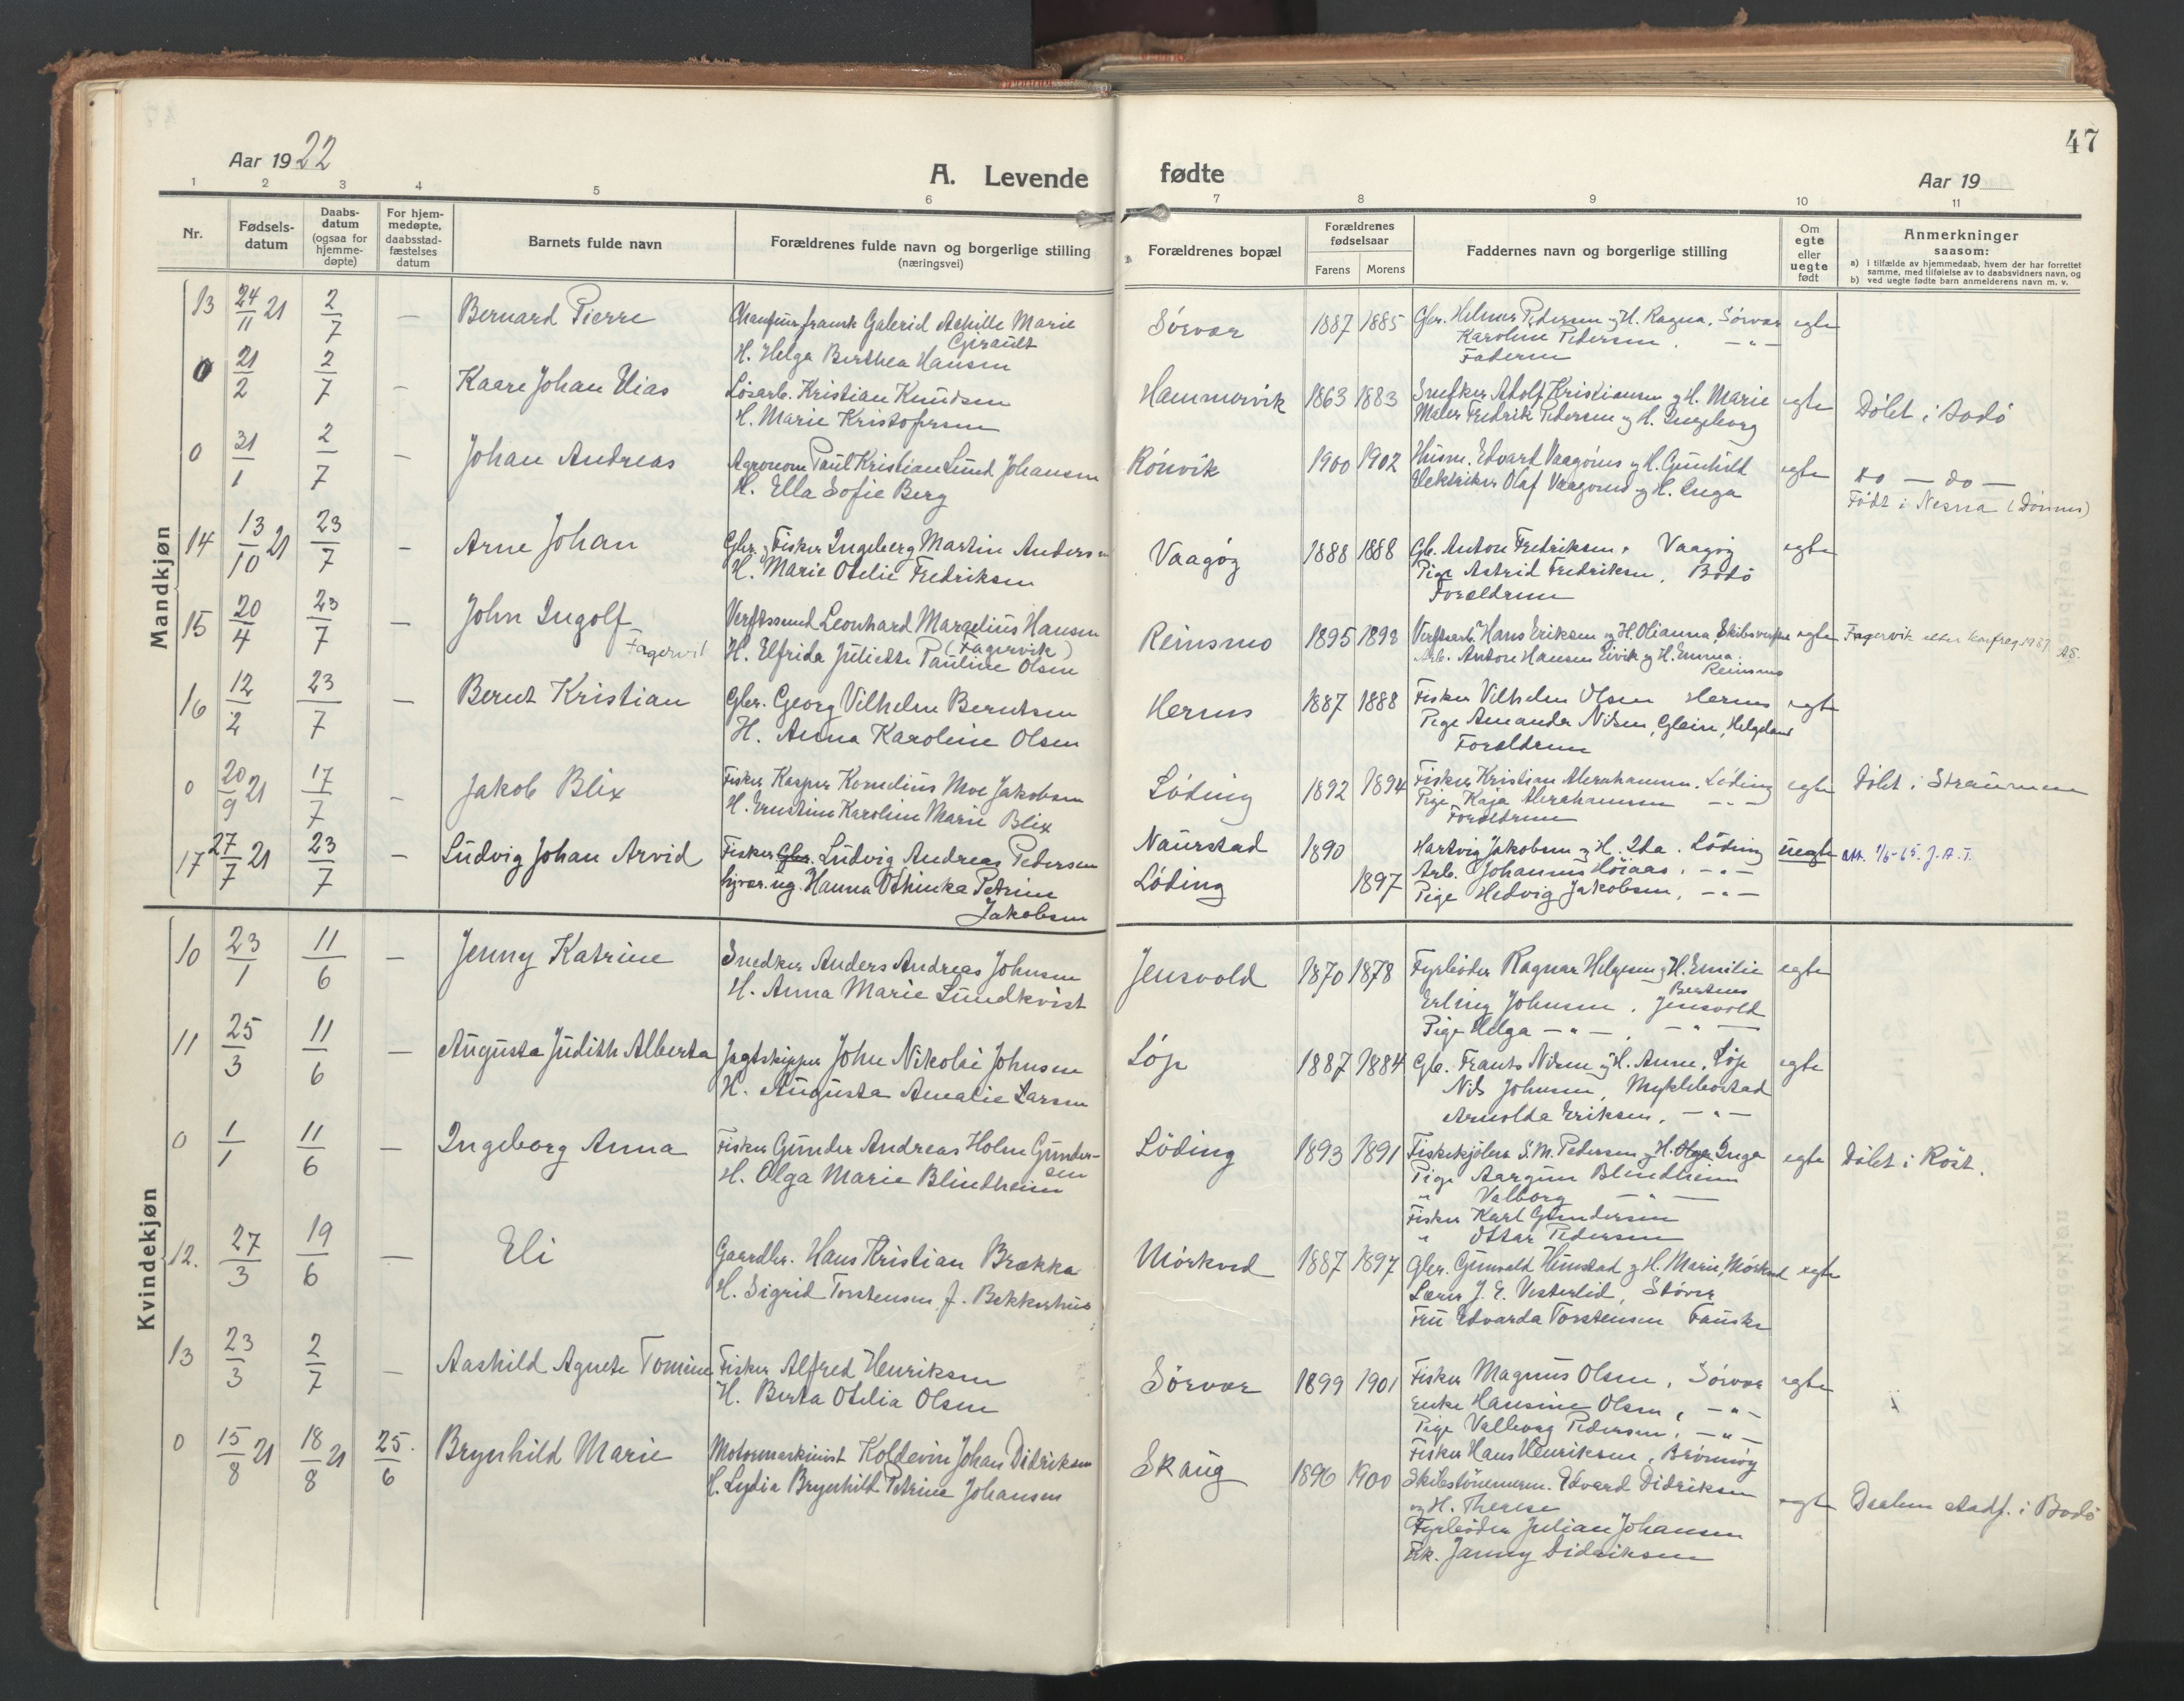 47
Aar 1922
A. Levende fødte
Aar 19
1 2 3 4 5 6 7 8 9 10 11
Nr.
Fødsels-
datum
Daabs-
datum
(ogsaa for
hjemme-
døpte)
For hjem-
medøpte,
daabsstad-
fæstelses
datum
Barnets fulde navn
Forældrenes fulde navn og borgerlige stilling
(næringsvei)
Forældrenes bopæl
Forældrenes
fødselsaar
Farens Morens
Faddernes navn og borgerlige stilling
Om
egte
eller
uegte
født
Anmerkninger
saasom:
a) i tilfælde av hjemmedaab, hvem der har forrettet
samme, med tilføielse av to daabsvidners navn, og
b) ved uegte fødte barn anmelderens navn m. v.
Mandkjøn
13 24/11 21 2/7 — Bernard Pierre
Chauffeur, fransk Galeriel Achille Marie
Girault
H. Helga Berthea Hansen
Sörvær 1887 1885
Gbr. Helmer Pedersen og H. Ragna, Sörvær
Karoline Pedersen, —"—
Faderen
egte
0 21/2 2/7 — Kaare Johan Elias
Lösarb. Kristian Knudsen
H. Marie Kristofersen
Hammervik 1863 1883
Snekker Adolf Kristiansen og H. Marie
Maler Fredrik Pedersen og H. Ingeborg
egte Döbt i Bodö
0 31/1 2/7 — Johan Andreas
Agronom Paul Kristian Lund Johansen
H. Ella Sofie Berg
Rönvik 1900 1902
Husm. Edvart Vaagönes og H. Gunhild
Elektriker Olaf Vaagönes og H. Inga
egte do — do —
Födt i Nesna (Dönnes)
14 13/10 21 23/7 — Arne Johan
Gbr. og Fisker Ingeberg Martin Andersen
H. Marie Otelie Fredriksen
Vaagöy 1888 1888
Gb. Anton Fredriksen, Vaagöy
Pige Astrid Fredriksen, Bodö
Forældrene
egte
15 20/4 23/7 — John Ingolf
Fagervik
Verftssmed Leonhard Marselius Hansen
(Fagervik)
H. Elfrida Juliette Pauline Olsen
Reinsmo 1895 1898
Verftsarb. Hans Eriksen og H. Olianna Skibsverftet
Arb. Anton Hansen Livik og H. Emma.
Reinsmo
egte Fagervik efter
16 12/2 23/7 — Bernt Kristian
Gbr. Georg Vilhelm Berntsen
H. Anna Karoline Olsen
Hernes 1887 1888
Fisker Vilhelm Olsen Hernes
Pige Amanda Nilsen, Glein, Helgeland
Forældrene
egte
0 20/9 21 17/7 — Jakob Blix
Fisker Kasper Kornelius Moe Jakobsen
H. Ernstine Karoline Marie Blix
Löding 1892 1894
Fisker Kristian Abrahamsen, Löding
Pige Kaja Abrahamsen —"—
Forældrene
egte Döbt i Straumen
17 27/7 21 23/7 — Ludvig Johan Arvid
Fisker Gbr. Ludvig Andreas Pedersen
hjvær. ug. Hanna Othinka Petrine
Jakobsen
Naurstad 1890
Löding 1897
Hartvig Jakobsen og H. Ida. Löding
Arb. Johannes Höiaas, —"—
Pige Hedvig Jakobsen, —"—
uegte att. 1/6-65. J.A.T.
Kvindekjøn
10 23/1 11/6 — Jenny Katrine
Snedker Anders Andreas Johnsen
H. Anna Marie Lundkvist
Jensvold 1870 1878
Fyrböder Ragnar Helgesen og H. Emilie
Bertnes
Erling Johnsen, Jensvold
Pige Helga —"—, —"—
egte
11 25/3 11/6 — Augusta Judith Alberta
Jagtskipper John Nikolai Johnsen
H. Augusta Amalie Larsen
Löp 1887 1884
Gb. Frants Nilsen og H. Anne, Löp
Nils Johnsen, Myklebostad
Arnolda Eriksen, —"—
egte
0 1/1 11/6 — Ingeborg Anna
Fisker Gunder Andreas Holm Gunder-
sen
H. Olga Marie Blindheim
Löding 1893 1891
Fiskekjöber S. M. Pedersen og H. Olga Inga
Pige Aargun Blindheim
" Valborg —"—
Fisker Karl Gundersen
" Ottar Pedersen
egte Döbt i Röst.
12. 27/3 19/6 — Eli
Gaardbr. Hans Kristian Brække
H. Sigrid Torstensen f. Bekkerhus
Mörkved 1887 1897
Gbr. Gunvald Hunstad og H. Marie, Mörkved
Lærer J. E. Vesterlid, Stöver
Fru Edvarda Torstensen Fauske
egte
13 23/3 2/7 — Aashild Agnete Tomine
Fisker Alfred Henriksen
H. Berta Otelia Olsen
Sörvær 1899 1901
Fisker Magnus Olsen, Sörvær
Enke Hansine Olsen, —"—
Pige Valborg Pedersen, —"—
Fisker Hans Henriksen, Brönnöy
egte
0 15/8 21 18/8 21 25/6 Brynhild Marie
Motormaskinist Koldevin Johan Didriksen
H. Lydia Brynhild Petrine Johansen
Skaug 1896 1900
Skibstömmerm. Edvard Didriksen
og H. Therese
Fyrböder Julian Johansen
Frk. Janny Didriksen
egte Daaben stadf. i Bodö